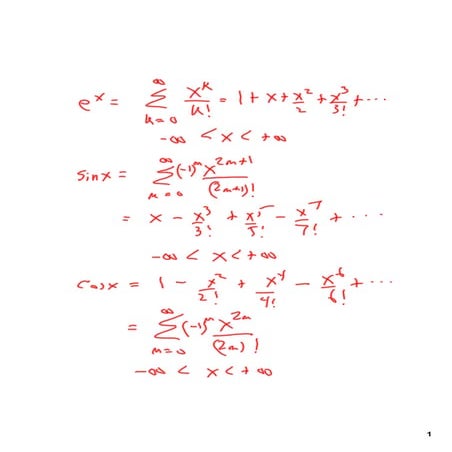 e^x = ∞ Σ n=0 x^n/n! = 1 + x + x^2/2 + x^3/3! + ...
-∞ < x < +∞
sin x = ∞ Σ n=0 (-1)^n x^(2n+1)/(2n+1)!
= x - x^3/3! + x^5/5! - x^7/7! + ...
-∞ < x < +∞
Cos x = 1 - x^2/2! + x^4/4! - x^6/6! + ...
= ∞ Σ n=0 (-1)^n x^2n/(2n)!
-∞ < x < +∞
1